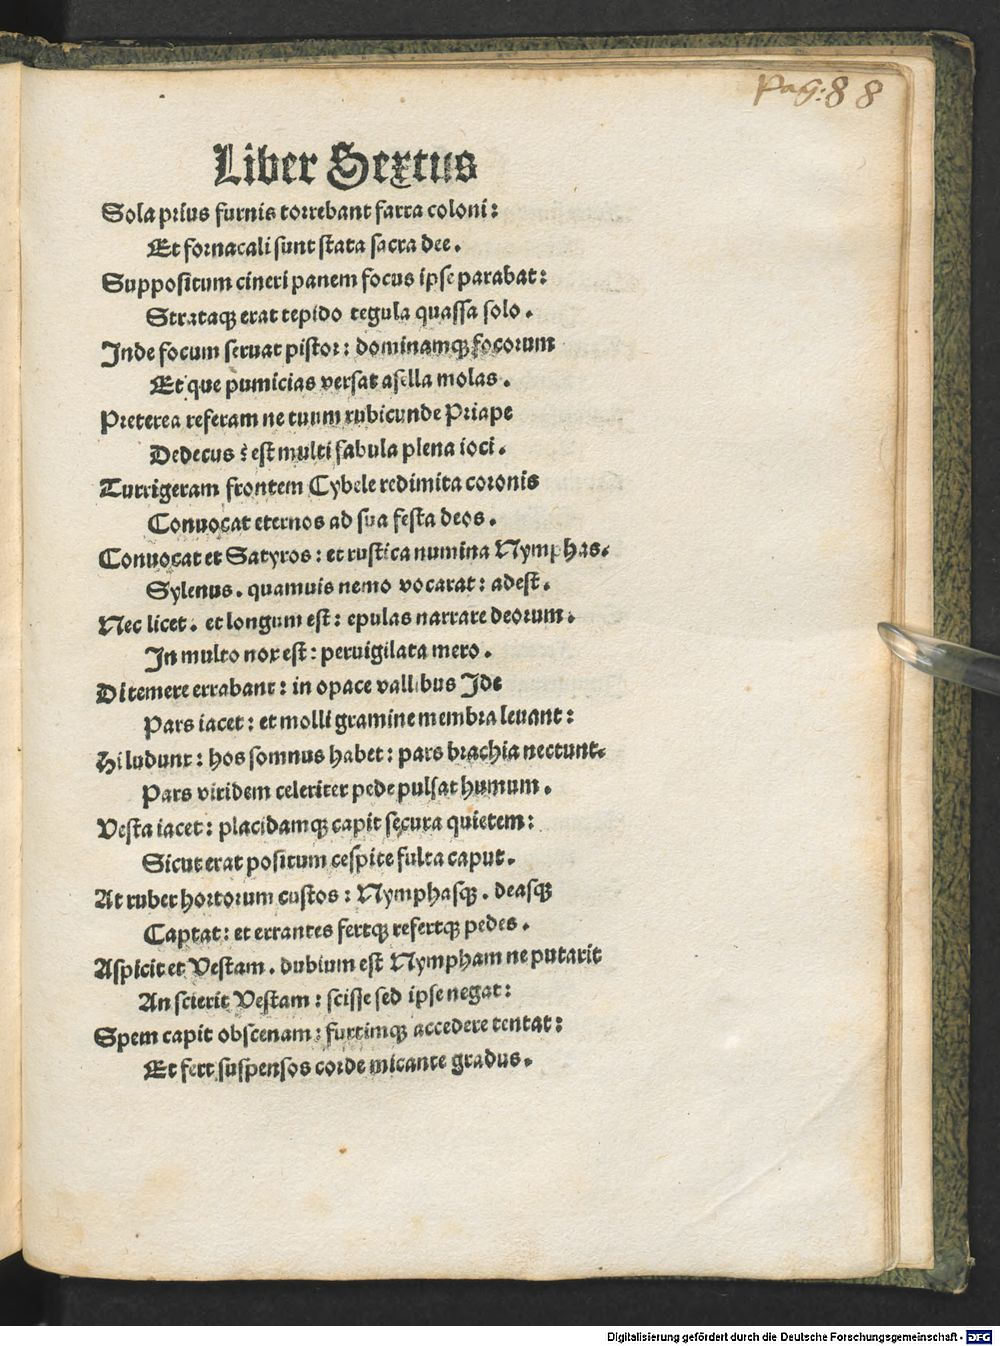 Pag: 88
Liber Sextus
Sola prius furnis torrebant farra coloni:
Et fornacali sunt stata sacra dee.
Suppositum cineri panem focus ipse parabat:
Strataqꝫ erat tepido tegula quassa solo.
Inde focum seruat pistor: dominamqꝫ focorum
Et que pumicias versat asella molas.
Preterea referam ne tuum rubicunde Priape
Dedecus: est multi fabula plena ioci.
Turrigeram frontem Cybele redimita coronis
Conuocat eternos ad sua festa deos.
Conuocat et Satyros: et rustica numina Nymphas.
Sylenus. quamuis nemo vocarat: adest.
Nec licet. et longum est: epulas narrare deorum.
In multo nox est: peruigilata mero.
Di temere errabant: in opace vallibus Ide
Pars iacet: et molli gramine membra leuant:
Hi ludunt: hos somnus habet: pars brachia nectunt.
Pars viridem celeriter pede pulsat humum.
Vesta iacet: placidamqꝫ capit secura quietem:
Sicut erat positum cespite fulta caput.
At ruber hortorum custos: Nymphasqꝫ. deasqꝫ
Captat: et errantes fertqꝫ refertqꝫ pedes.
Aspicit et Vestam. dubium est Nympham ne putarit
An scierit Vestam: scisse sed ipse negat:
Spem capit obscenam: furtimqꝫ accedere tentat:
Et fert suspensos corde micante gradus.
Digitalisierung gefördert durch die Deutsche Forschungsgemeinschaft - DFG